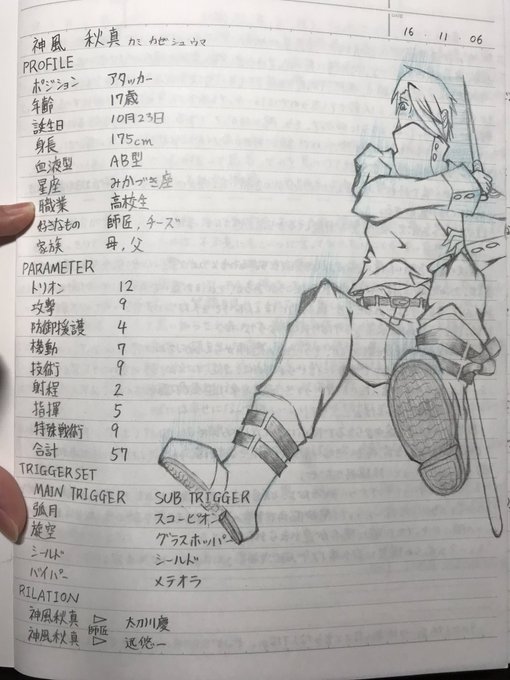 DATE
16 . 11 . 06
神風 秋真 カミカゼシュウマ
PROFILE
ポジション アタッカー
年齢 17歳
誕生日 10月23日
身長 175cm
血液型 AB型
星座 みかづき座
職業 高校生
好きなもの 師匠, チーズ
家族 母, 父
PARAMETER
トリオン 12
攻撃 9
防御援護 4
機動 7
技術 9
射程 2
指揮 5
特殊戦術 9
合計 57
TRIGGERSET
MAIN TRIGGER SUB TRIGGER
弧月 スコーピオン
旋空 グラスホッパー
シールド シールド
バイパー メテオラ
RILATION
神風秋真 ▷ 太刀川慶
師匠
神風秋真 ▷ 迅悠一